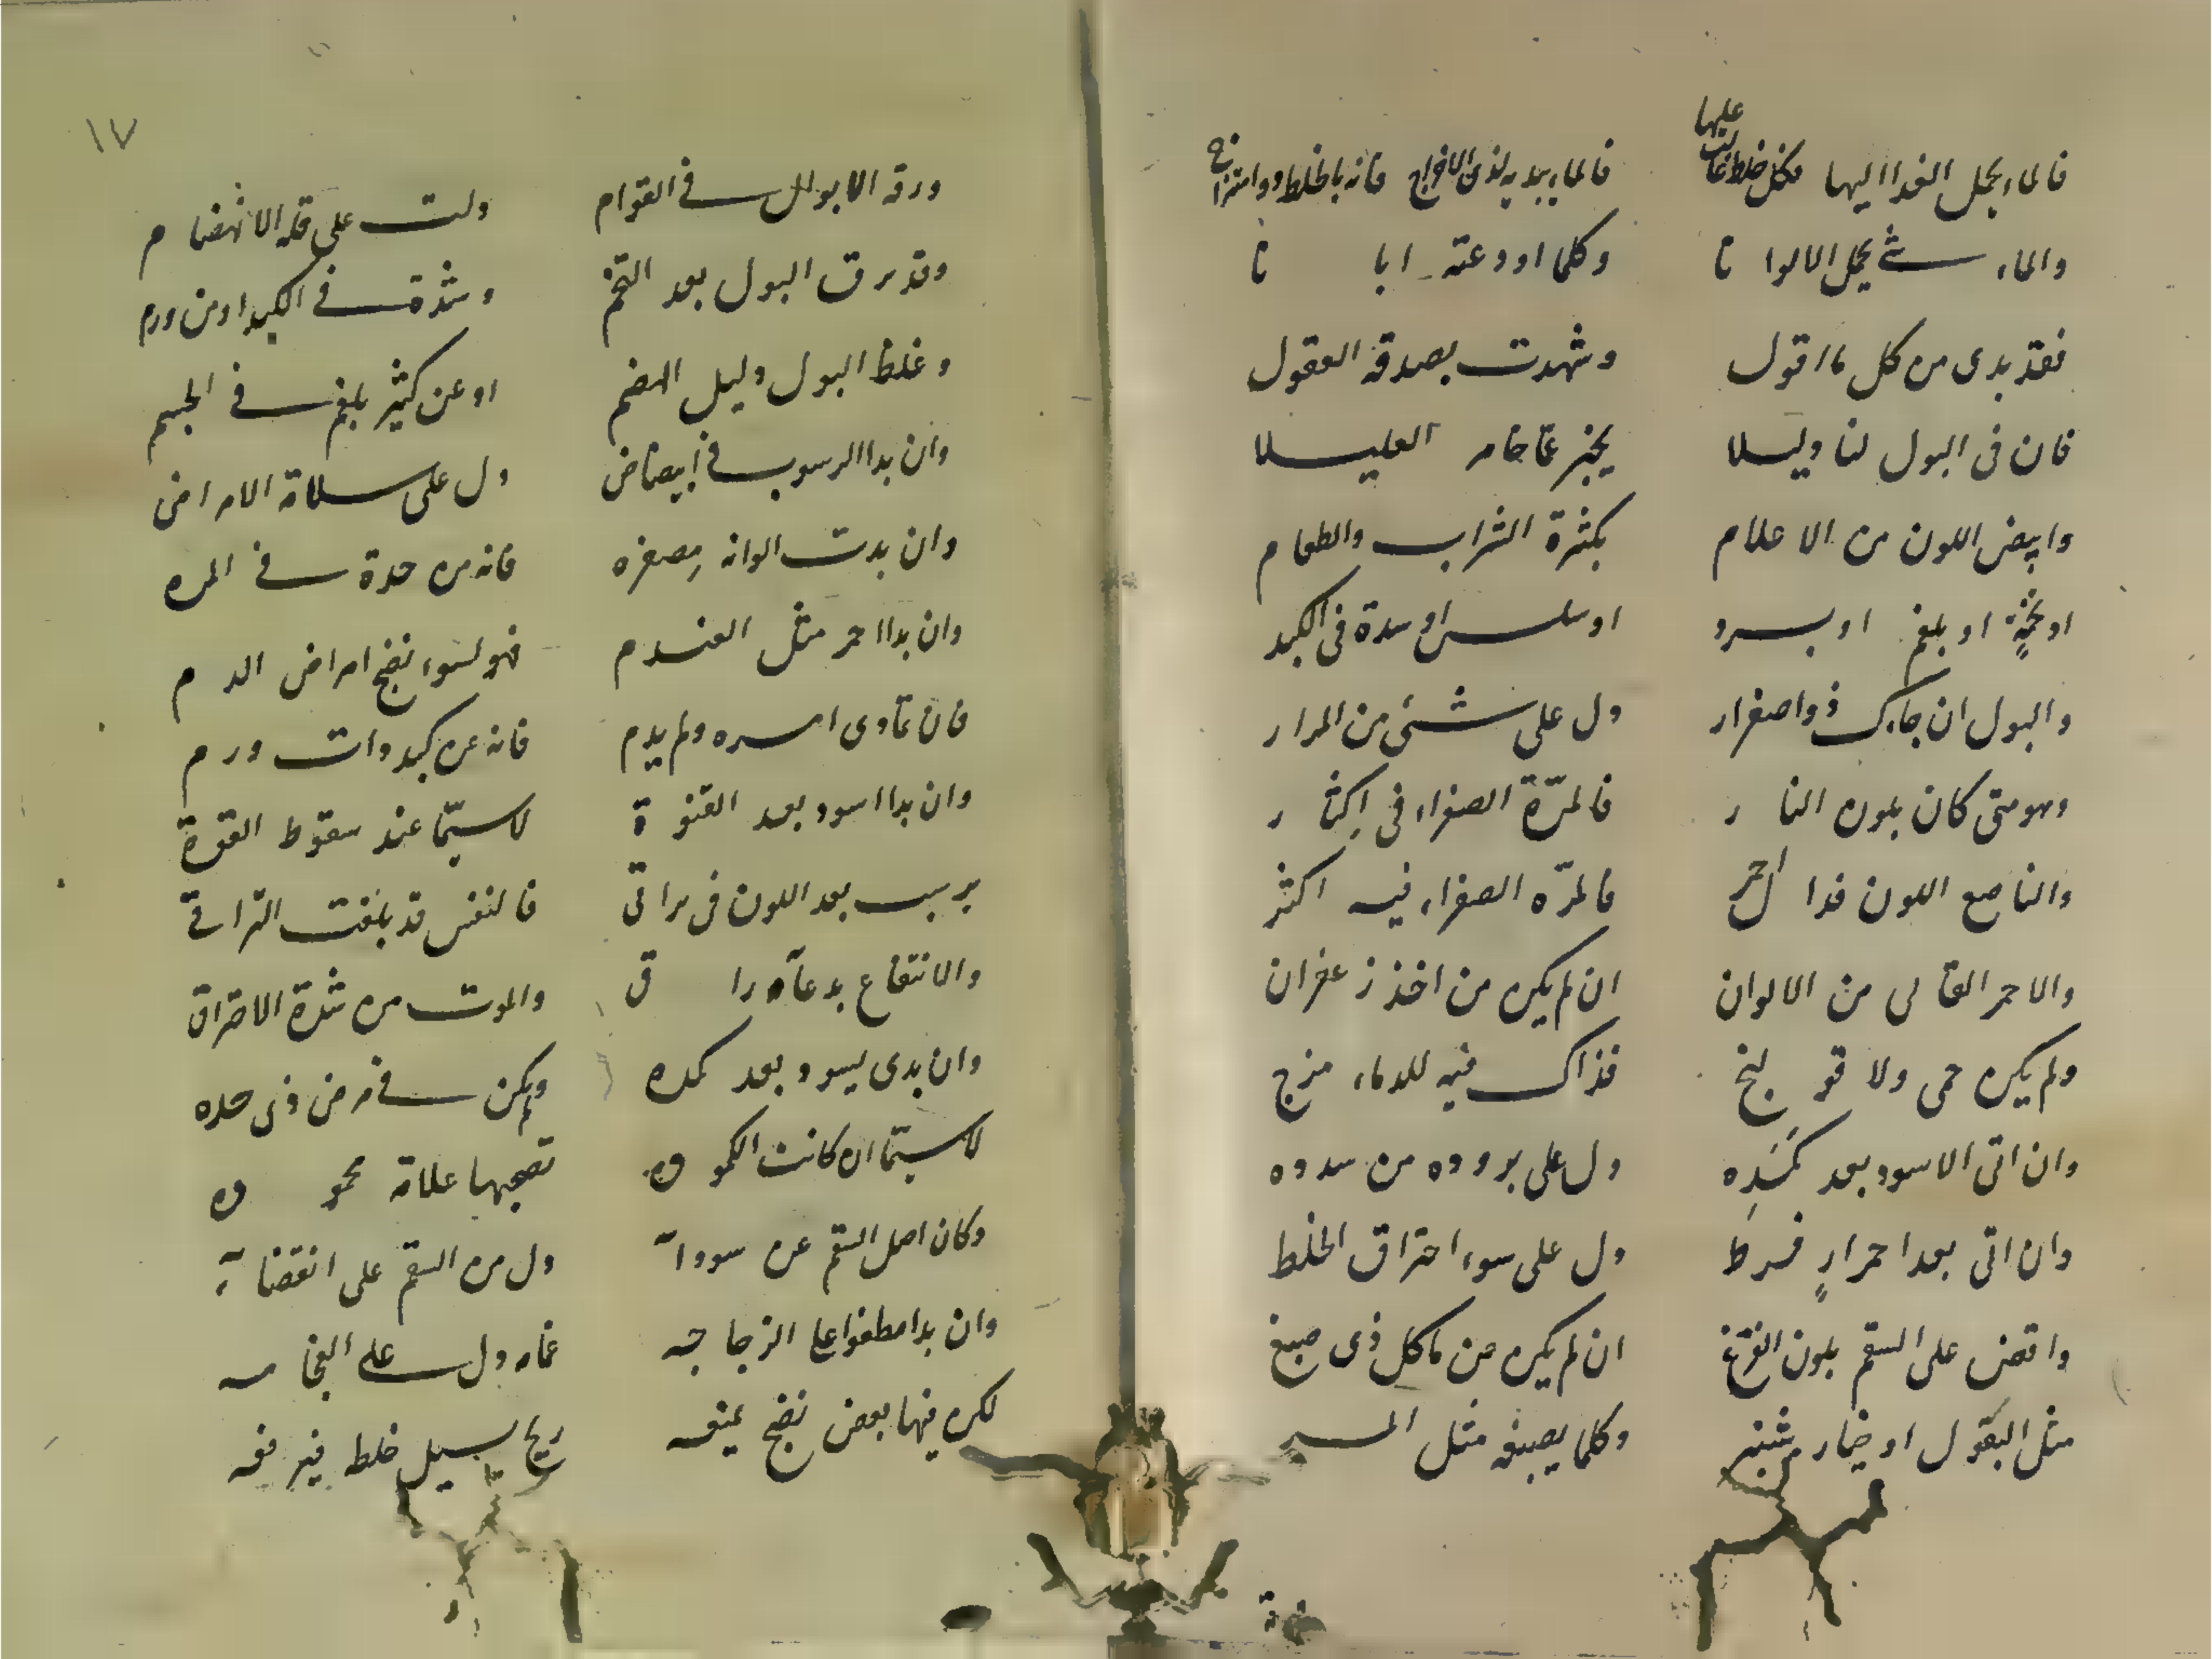 عليها
فالماء يحمل الغدا اليها فكل خلط غالب فالماء يبديه لذى الاخراج فانه بالخلط ذو امتزاج
والماء شئ يحمل الالوانا وكلما اودعته ابانا
فقد بدى من كل ما اقول وشهدت بصدقه العقول
فان فى البول لنا دليلا يخبر عما خامر العليلا
وابيض اللون من الاعلام بكثرة الشراب والطعام
او تخمة او بلغم او برد او سلس او سدة فى الكبد
والبول ان جاءك ذو اصفرار دل على شئ من المرار
وهو متى كان بلون النار فالمرّة الصفراء فى اكثار
والناصع اللون فذا احمر فالمرّه الصفراء فيه اكثر
والاحمر القانى من الالوان ان لم يكن من اخذ زعفران
ولم يكن حمى ولا قولنج فذاك فيه للدماء مزج
وان اتى الاسود بعد كمده دل على بروده من سدده
وان اتى بعد احمرار فرط دل على سوء احتراق الخلط
واقض على السقم بلون الفرغ ان لم يكن من ماكل ذى صبغ
مثل البقول او خيار شنبر وكلما يصبغه مثل المر
١٧
ورقه الابوال فى القوام دلت على قله الانهضام
وقد يرق البول بعد التخم وشدة فى الكبد او من ورم
وغلظ البول دليل الهضم او عن كثير بلغم فى الجسم
وان بدا الرسوب فى ابيضاض دل على سلامة الامراض
وان بدت الوانه مصفره فانه من حدة فى المره
وان بدا احمر مثل العندم فهو لسوء نضج امراض الدم
فان تمادى امره ولم يدم فانه عن كبد ذات ورم
وان بدا اسود بعد القنوة لاسيّما عند سقوط القوة
يرسب بعد اللون فى براقى فالنفس قد بلغت التراقى
والانتفاع بدعاء راق والموت من شدة الاحتراق
وان بدى يسود بعد كمده ولم يكن فى مرض ذى حده
لاسيّما ان كانت الكموده تصحبها علامة محموده
وكان اصل السقم عن سودائه دل من السقم على انقضائه
وان بدا مطفوا على الزجاجه غمامه دل على الفجاجه
لكن فيها بعض نضج يمنعه ريح يسيل خلط فيرفعه